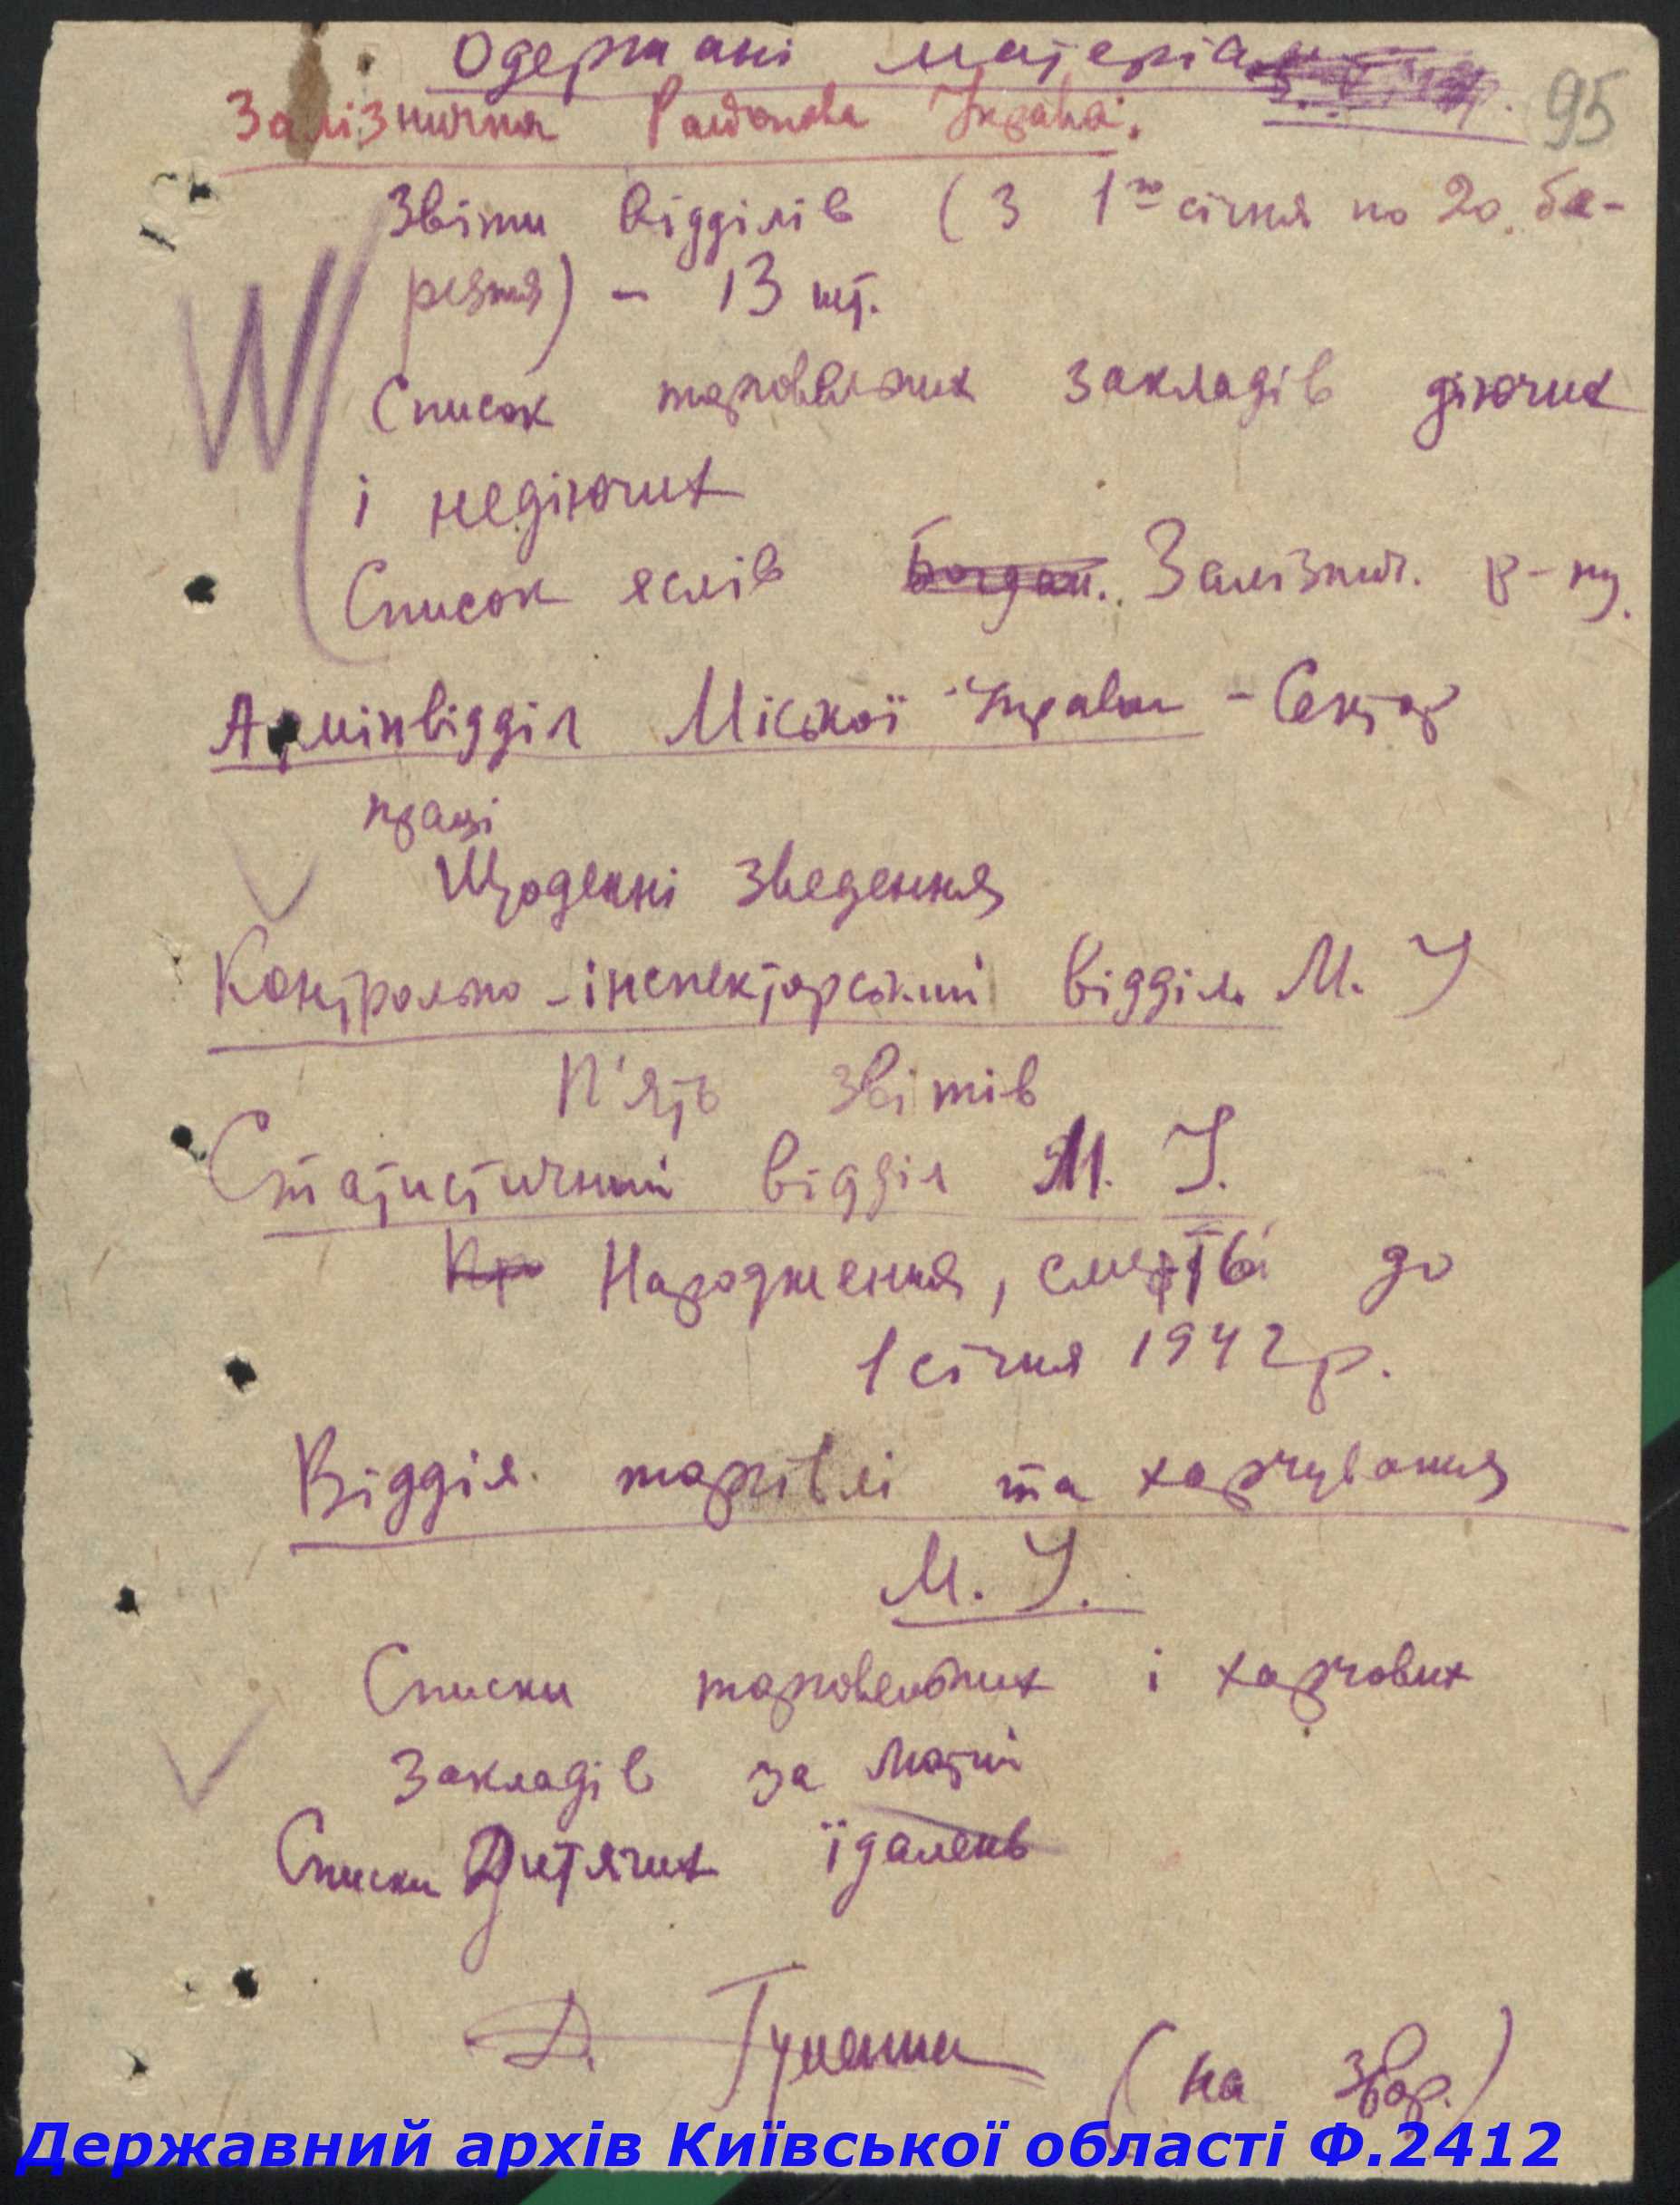 Одержані матеріали
95
Залізнична Районова Управа.
Звіти відділів (з 1го січня по 20. бе-
резня) – 13 шт.
Список торговельних закладів діючих
і недіючих
Список яслів Богдан. Залізнич. р-ну.
Адмінвідділ Міської Управи – Сектор
праці
Щоденні зведення
Контрольно-інспекторський відділ М. У
П'ять звітів
Статистичний відділ М. У.
Кр Народження, смертві до
1 січня 1942 р.
Відділ торгівлі та харчування
М. У.
Списки торговельних і харчових
закладів за лютий
Списки Дитячих їдалень
(на звор.)
Державний архів Київської області Ф.2412